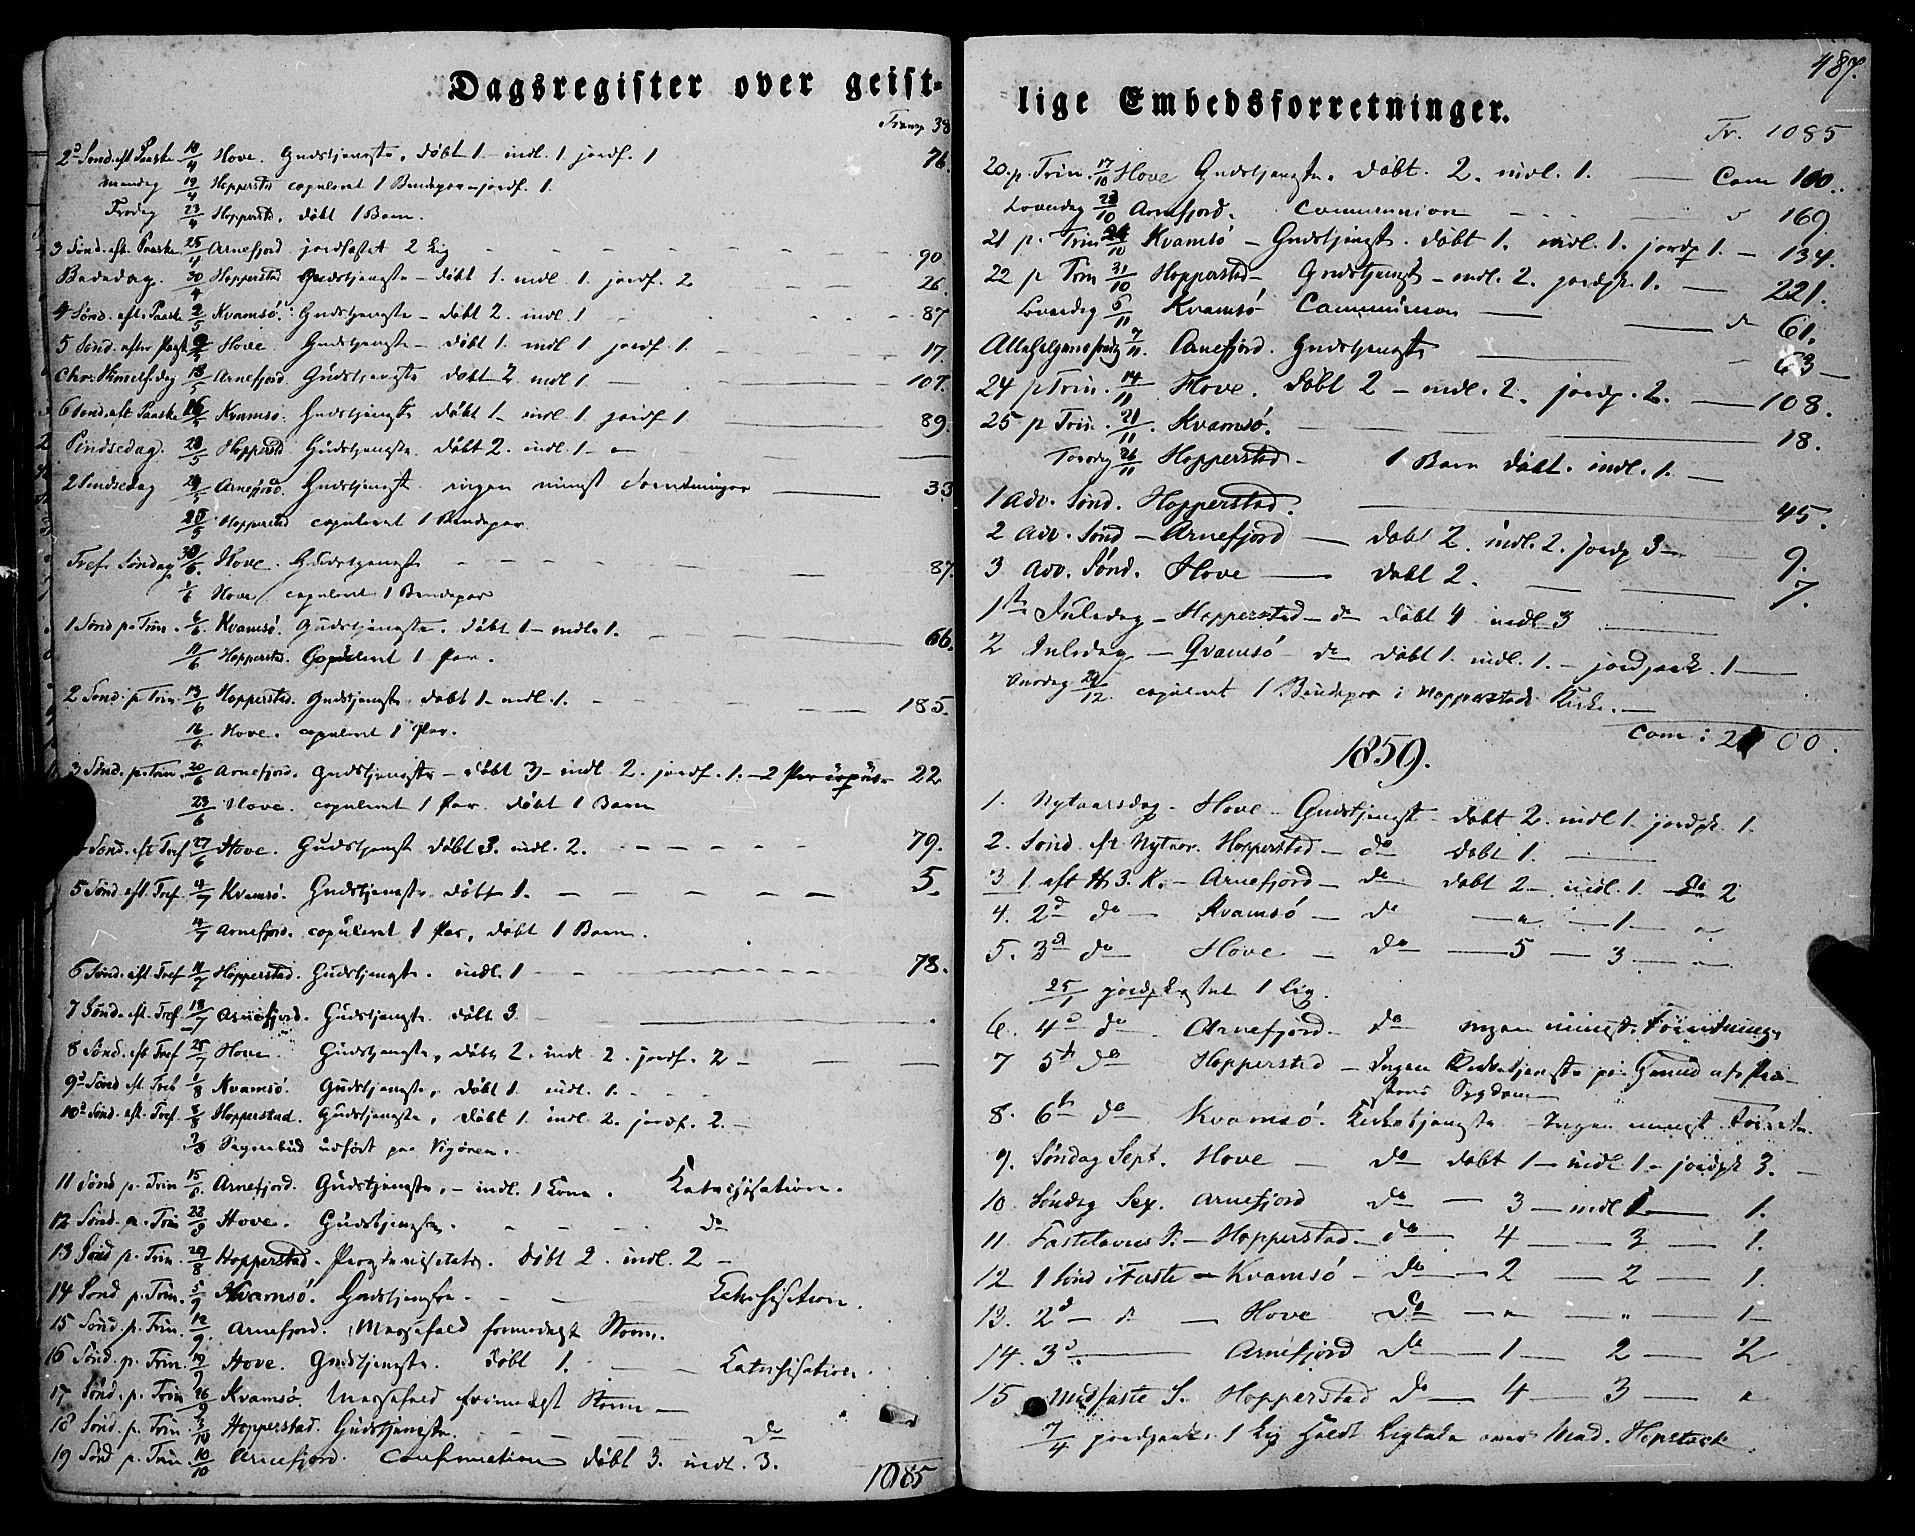 Dagsregister over geist-
Transp 38
2d Sønd. eft Paaske 18/4 Hove. Gudstjeneste. døbt 1 - indl. 1 jordf. 1 76.
Mandag 19/4 Hopperstad copuleret 1 Brudepar - jordf. 1.
Fredag 23/4 Hopperstd. døbt 1 Barn.
3 Sønd. eft. Paaske 25/4 Arnefjord jordfæstet 2 Lig - - - 90.
Bededag. 30/4 Hopperstad Gudstjeneste - døbt 1. indl. 1 jordf. 2 - - - 26.
4 Sønd. eft. Paaske 2/5 Kvamsö. Gudstjeneste - døbt 2. indl. 1 - - - 87
5 Sønd. efter Paaske 9/5 Hove Gudstjeneste - døbt 1. indl 1 jordf. 1. - - 17.
Chr. Himmelf. dag 13/5 Arnefjord Gudstjeneste døbt 2 indl 1 - - - 107.
6 Sønd. eft Paaske 16/5 Kvamsö. Gudstjeneste døbt 1 - indl 1 jordf 1. 89.
Pindsedag. 23/5 Hopperstd Gudstjeneste. døbt 2. indl. 1 -
2 Pindsedag 24/5 Arnefjord. Gudstjeneste ingen minist Forretninger 33
25/5 Hopperstad copuleret 1 Brudepar.
Tref. Søndag 30/5. Hove. Gudstjeneste - - - 87.
1/6 Hove copuleret 1 Brudepar
1 Sønd. p. Trin. 6/6. Kvamsö. Gudstjeneste. døbt 1 - indl. 1. - - 66.
11/6 Hopperstad. Copuleret 1 Par.
2 Sønd. p Trin. 13/6 Hopperstad. Gudstjeneste døbt 1. indl. 1. - - - 185.
16/6 Hove. copuleret 1 Par.
3 Sønd. p. Trin. 20/6 Arnefjord. Gudstjeneste - døbt 3 - indl 2. jordf. 1. - 2 Par copul. 22
23/6 Hove. copuleret 1 Par. døbt 1 Barn
Sønd. eft Tref 27/6 Hove. Gudstjenest døbt 3. indl. 2. - - - 79.
5 Sønd. eft Tref. 4/7 Kvamsö. Gudstjeneste. døbt 1. - - - 5.
4/7 Arnefjord. copuleret 1 Par, døbt 1 Barn.
6 Sønd. eft. Tref 11/7 Hopperstad. Gudstjeneste. indl. 1 - - - 78.
7 Sønd. eft. Tref. 18/7 Arnefjord. Gudstjeneste døbt 3
8 Sønd. eft Tref 25/7 Hove Gudstjeneste, døbt 2. indl 2. jordf. 2 -
9d Sønd eft. Tref 1/8 Kvamsö. Gudstjeneste, døbt 1 indl. 1. - -
10d Sønd. eft. Tref. 8/8 Hopperstad. Gudstjeneste, døbt 1. indl 2. jordf. 2. -
9/8 Sognebud udført paa Vigören.
11 Sønd p. Trin 15/8. Arnefjord. Gudstjeneste, - indl. 1 Kone. Katechisation.
12 Sønd. p. Trin 22/8 Hove. Gudstjeneste. - - - do
13 Sønd p. Trin. 29/8 Hopperstad. døbt 2. indl. 2 -
14 Sønd p. Trin. 5/9 Kvamsö. Gudstjeneste. - - Katechisation.
15 Sønd. p. Trin. 12/9. Arnefjord. Messefald formedelst Storm.
16 Sønd. p. Trin. 19/9 Hove. Gudstjeneste. døbt 1. - - Katechisation.
17 Sønd. p. Trin 26/9 Kvamsö. Messefald formedelst Storm -
18 Sønd. p. Trin. 3/10 Hopperstad. Gudstjeneste. - - - do
19 Sønd p. Trin. 10/10 Arnefjord. Confirmation døbt 3. indl. 3.
1085
487.
lige Embedsforretninger.
Tr. 1085
20. p. Trin. 17/10 Hove Gudstjeneste. døbt. 2. indl. 1. - Com 100.
Lørendag 23/10 Arnefjord. Communion - - 169.
21 p. Trin 24/10 Kvamsö - Gudstjeneste. døbt 1. indl. 1. jordf 1. - 134.
22 p Trin 31/10 Hopperstad - Gudstjenest - indl. 2. jordf. 1. - 221.
Løverdag 6/11 Kvamsö Communion - do 61.
Allehelgensfredag 7/11. Arnefjord. Gudstjeneste - 63 -
24 p Trin. 14/11 Hove. døbt 2 - indl. 2. jordf. 2. - 108.
25 p Trin. 21/11. Kvamsö. - - - 18.
Torsdag 26/11 Hopperstad - 1 Barn døbt. indl. 1. -
1 Adv. Sønd. Hopperstad. 45.
2 Adv. Sønd - Arnefjord - døbt 2. indl. 2. jordf 3 - 9.
3 Adv. Sønd. Hove - døbt 2. - 7.
1ste Juledag - Hopperstad - do døbt 4 indl 3
2 Juledag - Qvamsö - do døbt 1. indl. 1. - jordfæst. 1 -
Onsdag 29/12 copuleret 1 Brudepar i Hopperstads Kirke. -
Com: 2100.
1859.
1. Nytaarsdag - Hove - Gudstjenest - døbt 2. indl 1. jordf. 1.
2. Sønd. eft Nytaar. Hopperstad - do døbt 1. -
3 1. eft H. 3. K. - Arnefjord - do døbt 2 - indl. 1. do 2
4. 2d do - Kvamsö - do - " - 1 - "
5. 3d do - Hove - do - 5 - 3 - "
25/1 jordfæstet 1 Lig.
6. 4d do - Arnefjord. - do ingen minist. Forretning.
7 5te do Hopperstad - Ingen Kirketjeneste paa Grund af Præ-
stens Sygdom
8. 6te do Kvamsö. Kirketjeneste - Ingen minist Forretn.
9. Søndag Sept. Hove - do døbt 1 - indl 1 - jordf 3. -
10. Søndag Sex. Arnefjord do - 3 - indl 1 - 1.
11. Fastelavns S. - Hopperstad - do - 4 - 3 - 1.
12 1 Sønd i Faste - Kvamsö - do - 2 - 2 - 1.
13. 2d - d - Hove do - " - " - 1 -
14. 3d. - Arnefjord do - 1 - 2 - 2
15 Midfaste S. Hopperstad do - 4 - 3 - "
7/4 jordfæst. 1 Lig holdt Ligtale over Mad. Hopstock